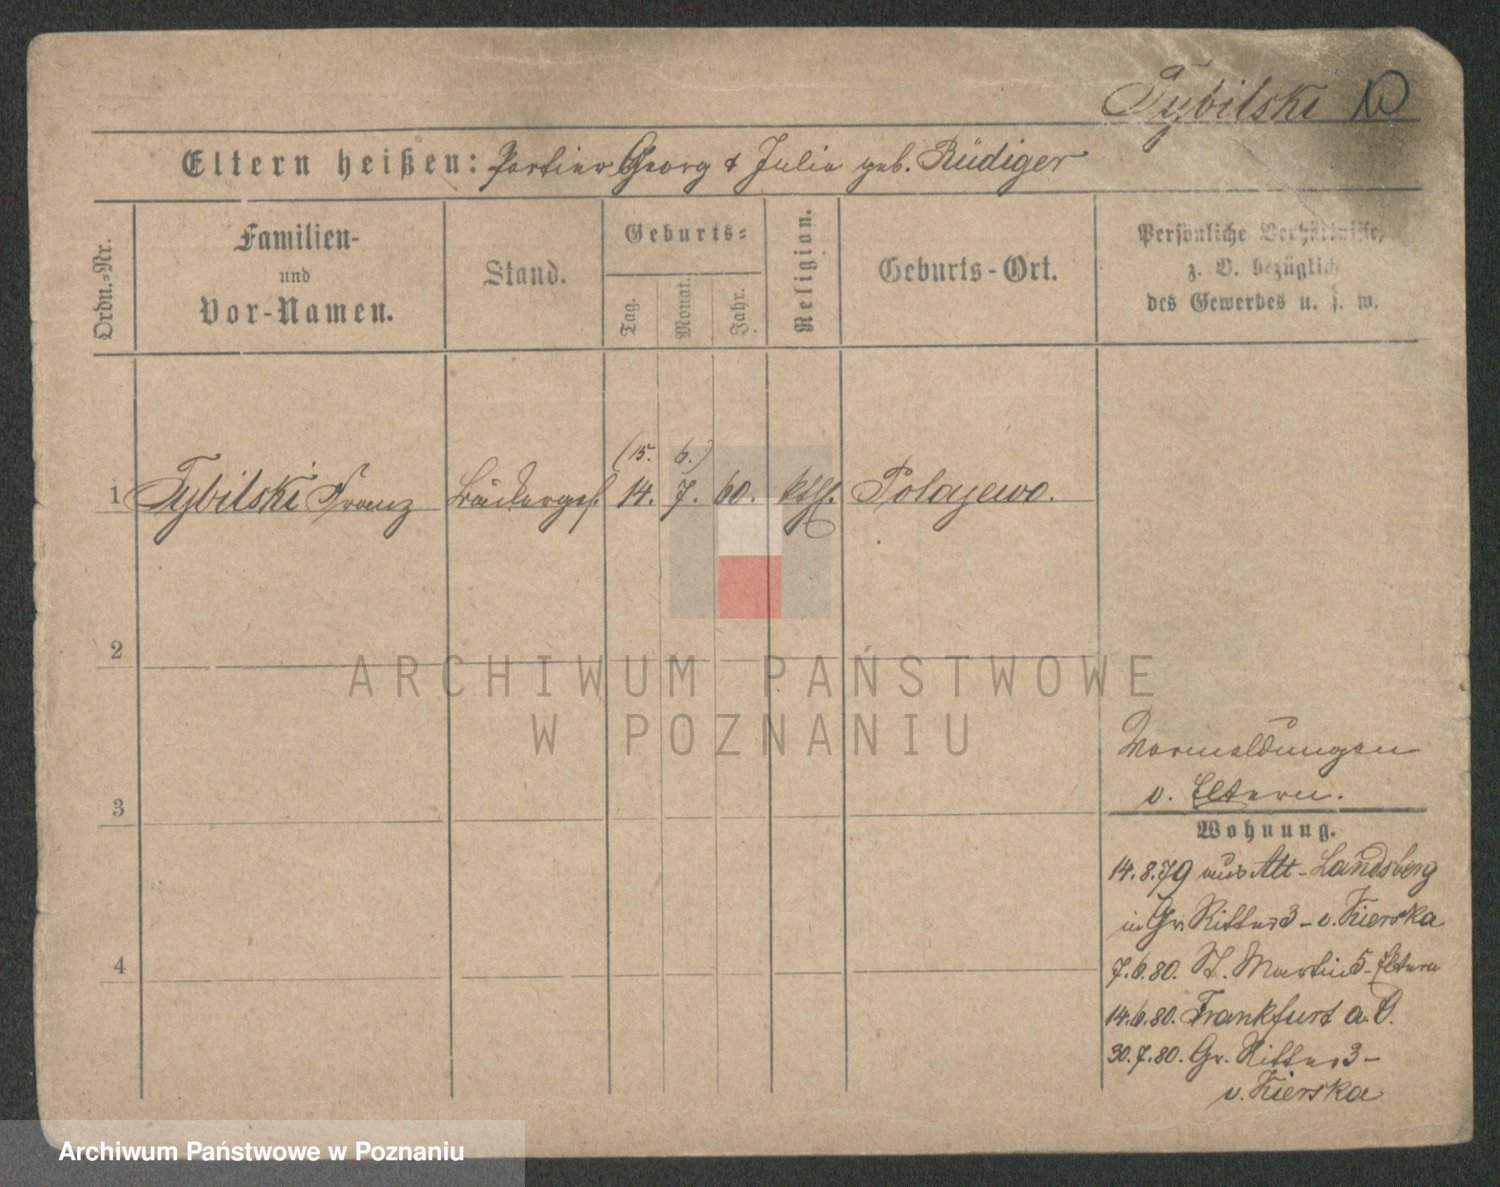 Tybilski
Eltern heißen: Portier Georg & Julia geb. Rüdiger
Ordn.-Nr.
Familien-
und
Vor-Namen.
Stand.
Geburts-
Tag.
Monat.
Jahr.
Religion.
Geburts-Ort.
Persönliche Verhältnisse,
z. B. bezüglich
des Gewerbes u. s. w.
(15. 6.)
1 Tybilski Franz Bäckerges. 14. 7. 60. kth. Polajewo.
2
3
4
Vormeldungen
v. Eltern.
Wohnung.
14.8.79 aus Alt-Landsberg
in Gr. Ritter 3 - v. Kierska
7.6.80. St. Martin 5 - Eltern
14.6.80. Frankfurt a. O.
30.7.80. Gr. Ritter 3 -
v. Kierska
ARCHIWUM PAŃSTWOWE
W POZNANIU
Archiwum Państwowe w Poznaniu